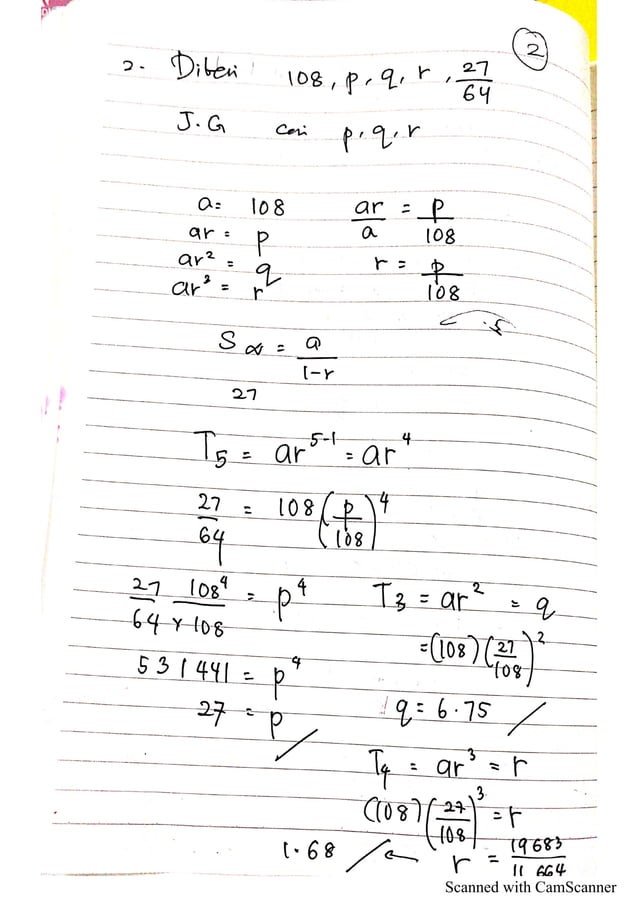 2
2. Diberi 108, p, q, r, 27/64
J.G cari p, q, r
a = 108
ar = p
ar² = q
ar³ = r
ar/a = p/108
r = p/108
S∞ = a/1-r
27
T5 = ar^5-1 = ar^4
27/64 = 108(p/108)^4
27/64 108^4/×108 = p^4
531441 = p^4
27 = p
T3 = ar² = q
= (108)(27/108)²
q = 6.75
T4 = ar³ = r
(108)(27/108)³ = r
r = 19683/11 664
1.68
Scanned with CamScanner